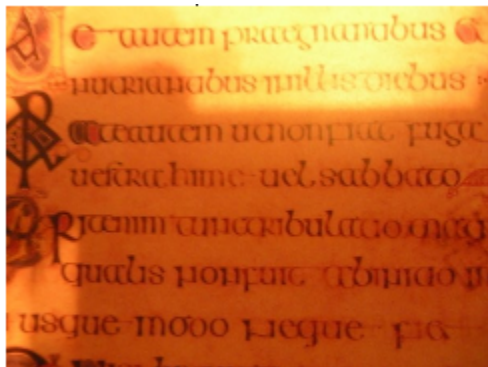 Uae autem praegnantibus et
nutriantibus in illis diebus
Orate autem ut non fiat fuga
uestra hime uel sabbato
Erit enim tunc tribulatio mag
qualis non fuit ab initio m
usque modo neque fie